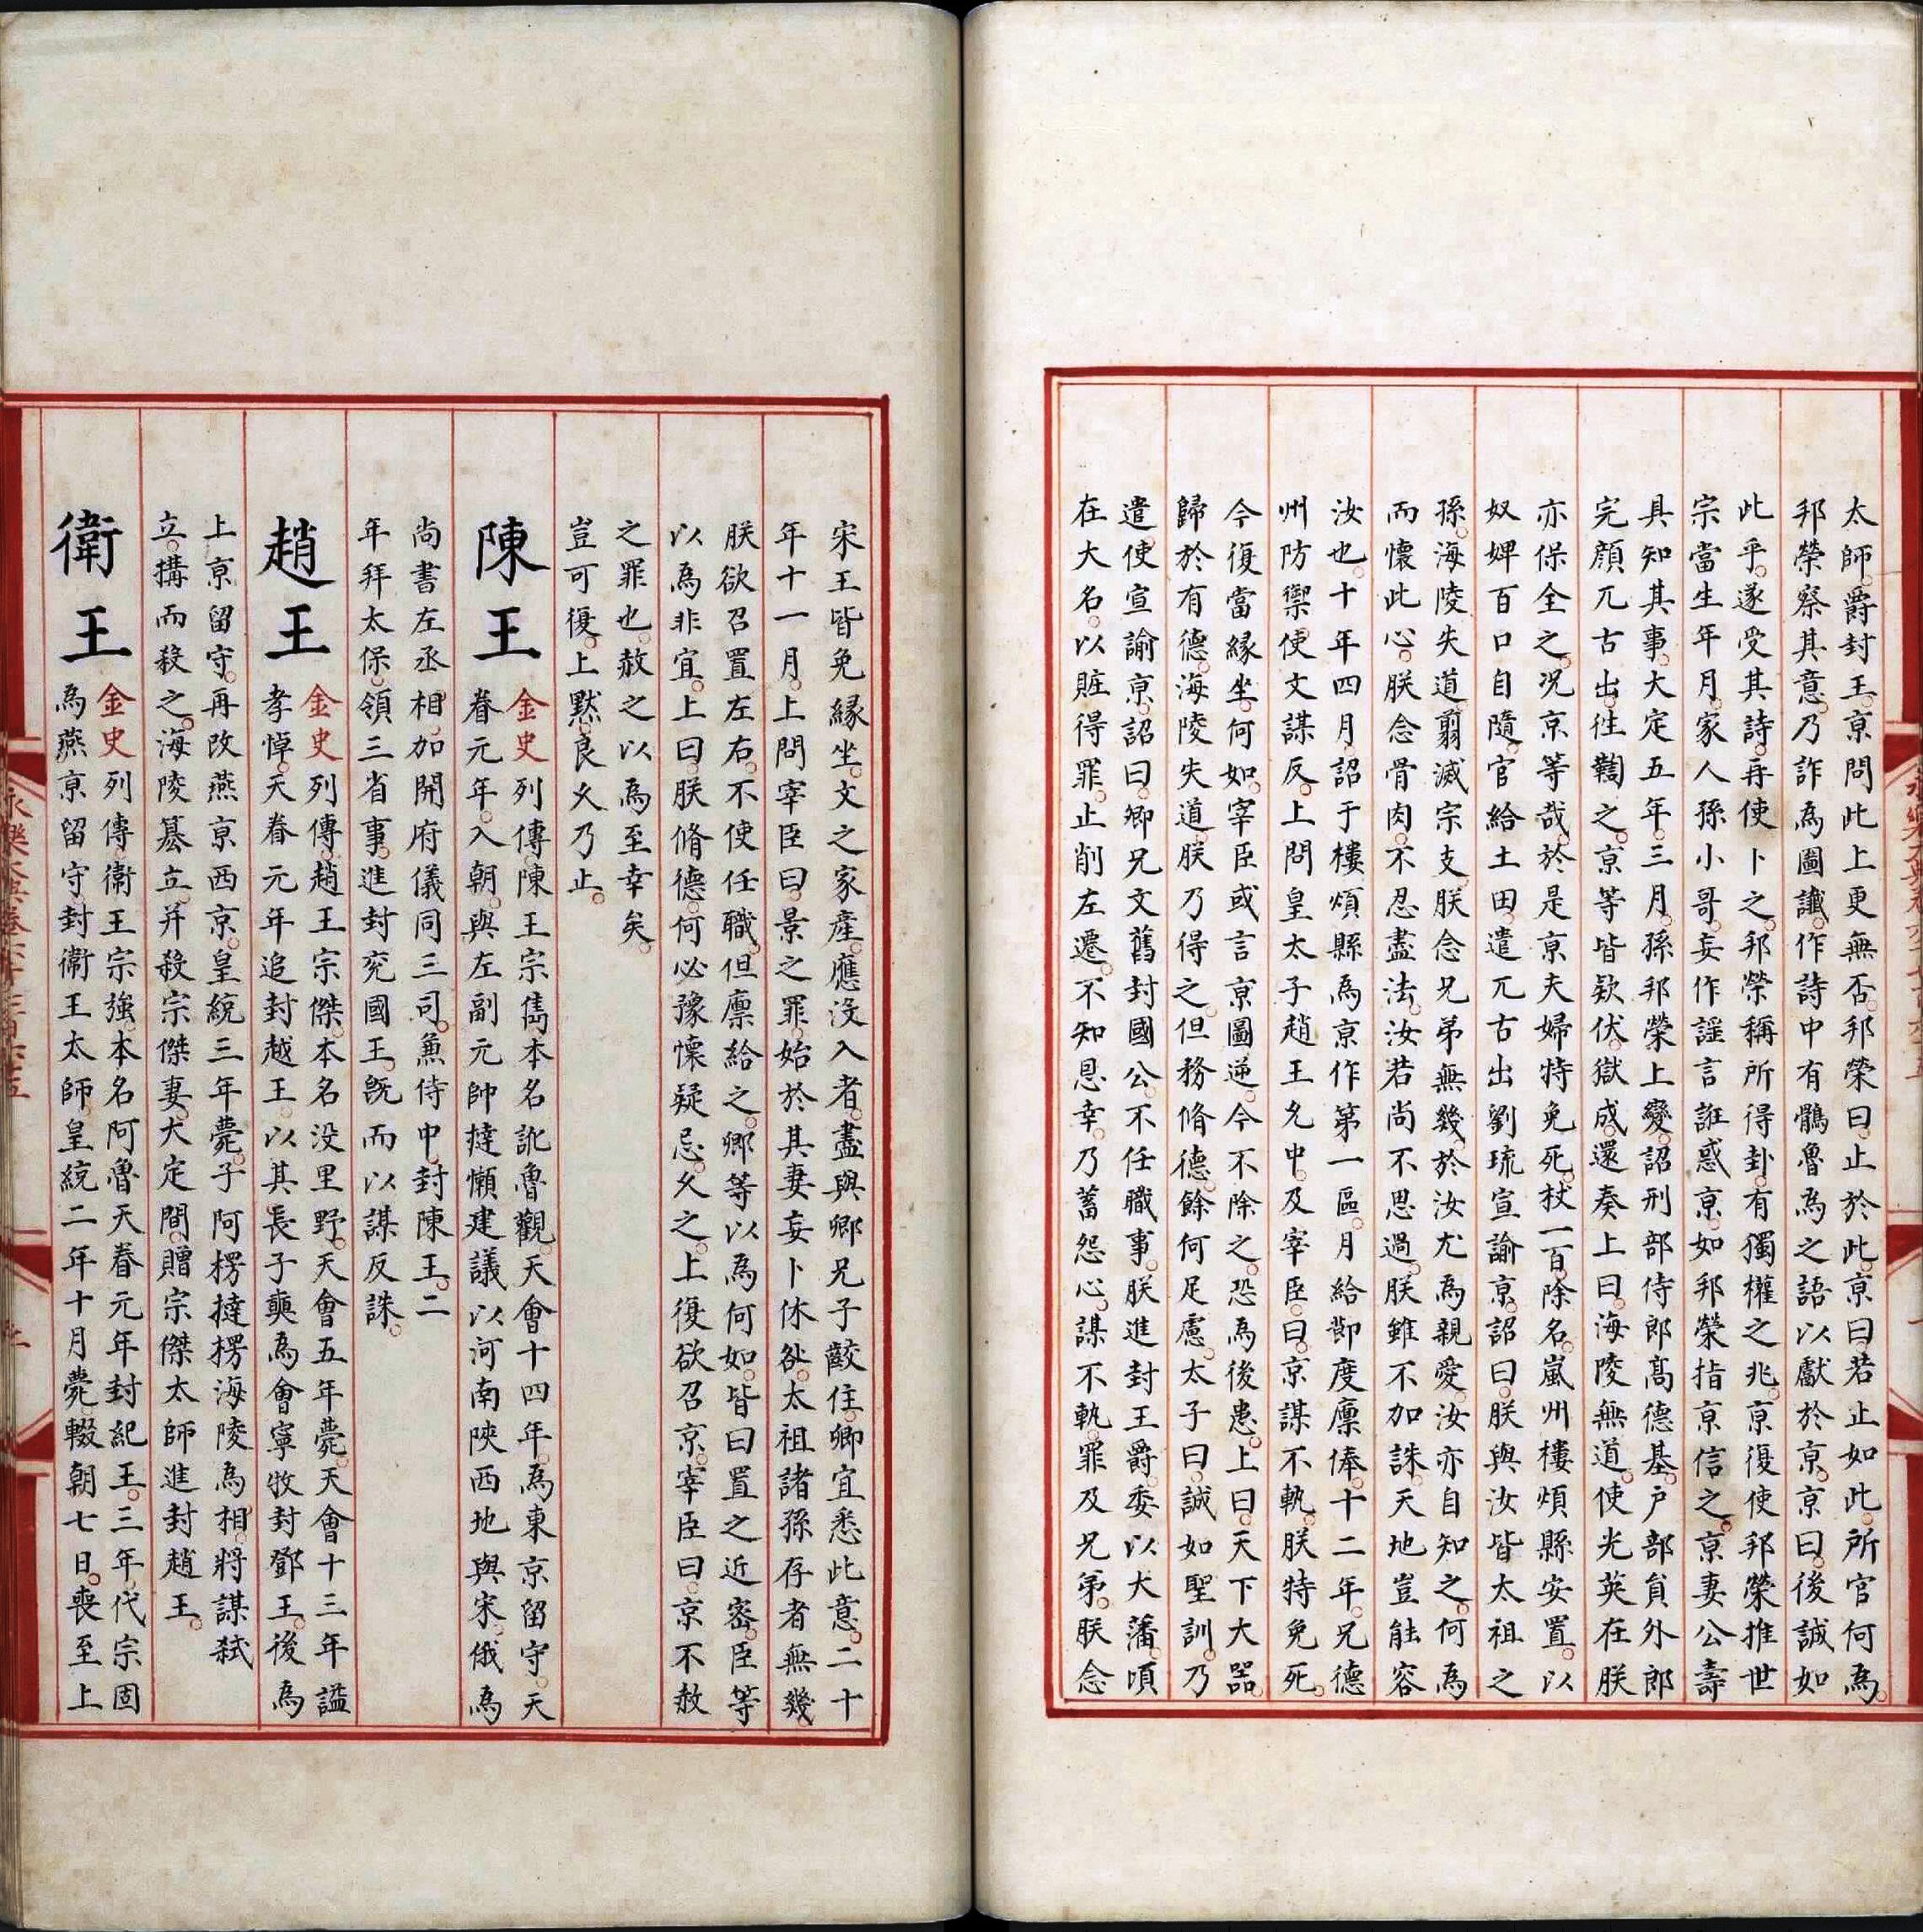 太師爵封王京問此上更無否邦榮曰止於此京曰若止如此所官何為
邦榮察其意乃詐為圖讖作詩中有鶻魯為之語以獻於京京曰後誠如
此乎遂受其詩再使卜之邦榮稱所得卦有獨權之兆京復使邦榮推世
宗當生年月家人孫小哥妄作謡言誑惑京如邦榮指京信之京妻公壽
具知其事大定五年三月孫邦榮上變詔刑部侍郎髙德基户部員外郎
完顔兀古出徃鞫之京等皆欵伏獄成還奏上曰海陵無道使光英在朕
亦保全之况京等哉於是京夫婦特免死杖一百除名嵐州樓煩縣安置以
奴婢百口自隨官給土田遣兀古出劉琉宣諭京詔曰朕與汝皆太祖之
孫海陵失道翦滅宗支朕念兄弟無幾於汝尤為親愛汝亦自知之何為
而懷此心朕念骨肉不忍盡法汝若尚不思過朕雖不加誅天地豈能容
汝也十年四月詔于樓煩縣為京作第一區月給節度廪俸十二年兄德
州防禦使文謀反上問皇太子趙王允中及宰臣曰京謀不軌朕特免死
今復當緣坐何如宰臣或言京圖逆今不除之恐為後患上曰天下大器
歸於有德海陵失道朕乃得之但務脩德餘何足慮太子曰誠如聖訓乃
遣使宣諭京詔曰卿兄文舊封國公不任職事朕進封王爵委以大藩頃
在大名以賍得罪止削左遷不知恩幸乃蓄怨心謀不軌罪及兄弟朕念
宋王皆免緣坐文之家產應沒入者盡與卿兄子䶢住卿宜悉此意二十
年十一月上問宰臣曰景之罪始於其妻妄卜休咎太祖諸孫存者無幾
朕欲召置左右不使任職但廪給之卿等以為何如皆曰置之近密臣等
以為非宜上曰朕脩德何必豫懷疑忌久之上復欲召京宰臣曰京不赦
之罪也赦之以為至幸矣
豈可復上黙良久乃止
陳王 金史列傳陳王宗雋本名訛魯觀天會十四年為東京留守天
眷元年入朝與左副元帥撻懶建議以河南陝西地與宋俄為
尚書左丞相加開府儀同三司兼侍中封陳王二
年拜太保領三省事進封兖國王旣而以謀反誅
趙王 金史列傳趙王宗傑本名没里野天會五年薨天會十三年謚
孝悼天眷元年追封越王以其長子奭為會寧牧封鄧王後為
上京留守再改燕京西京皇統三年薨子阿楞撻楞海陵為相將謀弑
立搆而殺之海陵簒立并殺宗傑妻大定間贈宗傑太師進封趙王
衛王 金史列傳衛王宗強本名阿魯天眷元年封紀王三年代宗固
為燕京留守封衛王太師皇統二年十月薨輟朝七日喪至上